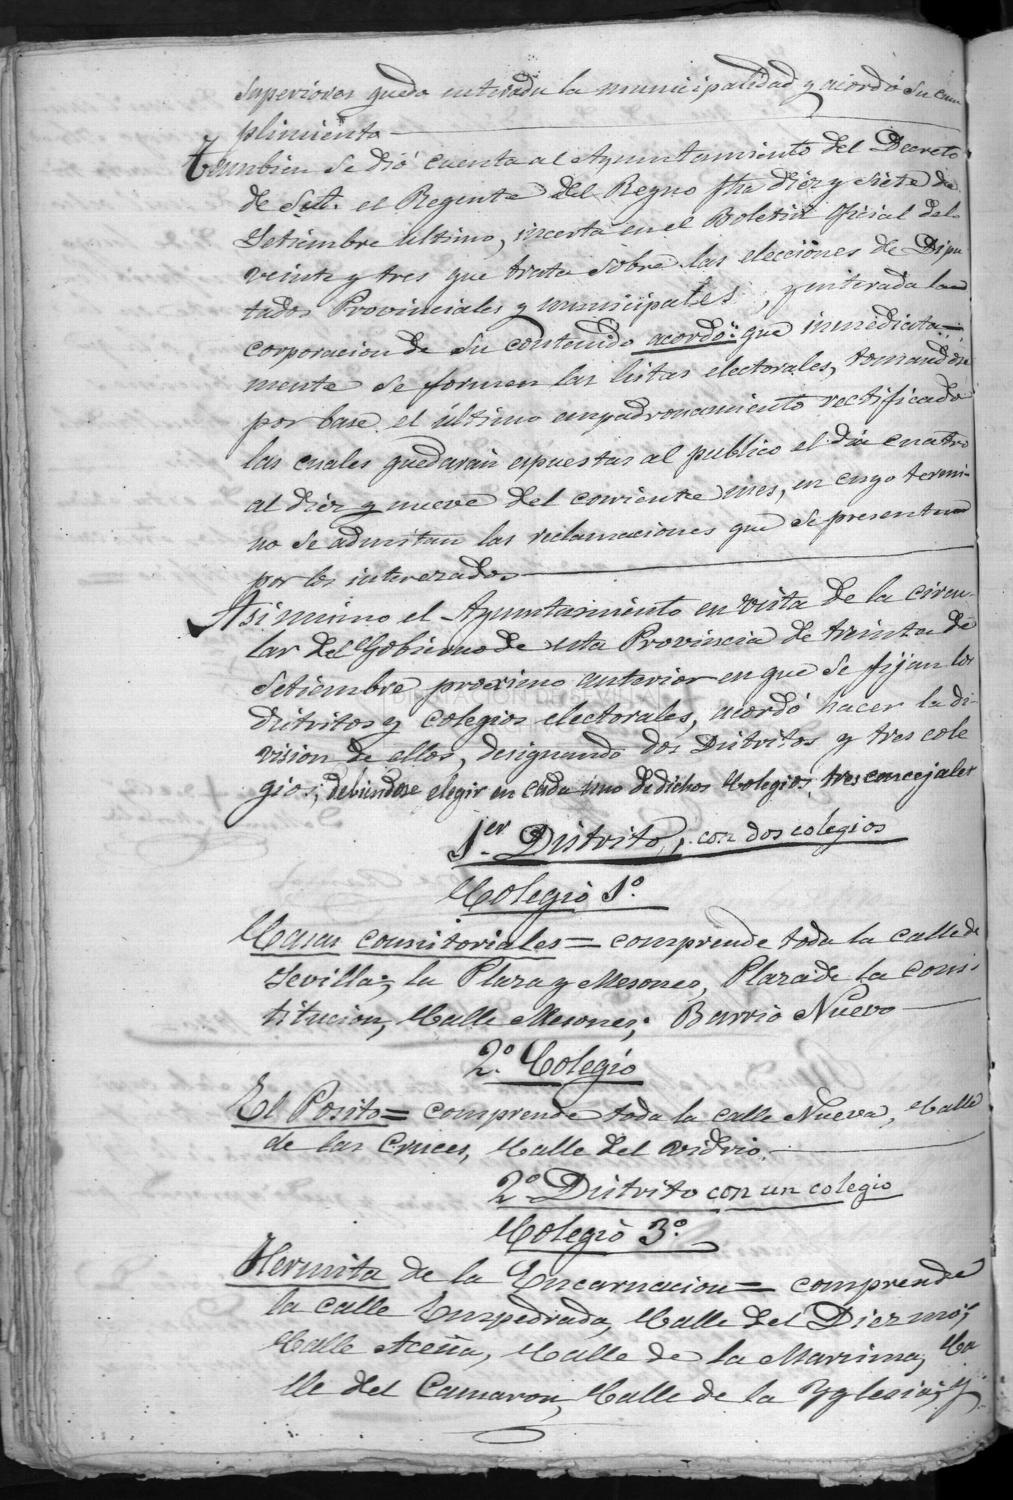 Superiores queda enterada la municipalidad y acordó su cum
plimiento
Tambien se dió cuenta al Ayuntamiento del Decreto
de S.A. el Regente del Reyno fha diez y siete de
Setiembre ultimo, incerta en el Boletin Oficial del
veinte y tres que trata sobre las elecciones de Dipu
tados Provinciales y municipales, y enterada la
corporacion de su contenido acordó: que inmediata=
mente se formen las listas electorales, tomandose
por base el último empadronamiento rectificado
las cuales quedarán espuestas al publico el dia cuatro
al diez y nueve del corriente mes, en cuyo termi-
no se admitan las reclamaciones que se presenten
por los interezados
Asimismo el Ayuntamiento en vista de la circu-
lar del Gobierno de esta Provincia de treinta de
Setiembre proximo anterior en que se fijan los
distritos y colegios electorales, acordó hacer la di-
vision de ellos, designando dos Distritos y tres cole
gios; debiendose elegir en cada uno de dichos Colegios tres concejales
1.er Distrito, con dos colegios
Colegio 1.º
Casas consitoriales = comprende toda la calle de
Sevilla; la Plaza y Mesones, Plaza de la Cons-
titucion, Calle Mesones; Barrio Nuevo
2.º Colegio
El Posito = comprende toda la calle Nueva, Calle
de las Cruces, Calle del Vidrio.
2º Distrito con un colegio
Colegio 3.º
Hermita de la Encarnacion = comprende
la calle Empedrada, Calle del Diezmo,
Calle Aceña, Calle de la Marzima, Ca
lle del Camaron, Calle de la Yglesia, y
DIPUTACIÓN DE SEVILLA